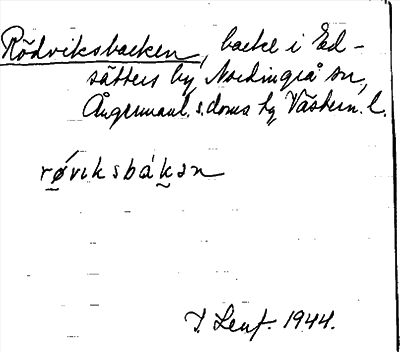 Rödviksbacken, backe i Ed-
sätters by, Nordingrå sn,
Ångermanl. s. doms hg, Västern. l.
røviksbákən
I. Lenf. 1944.